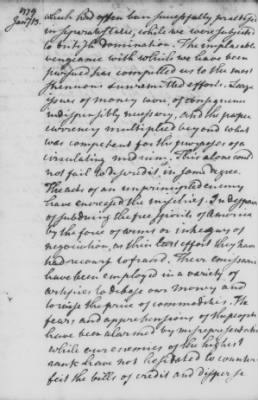 1779
Jan'y 13.
which had often been successfully practised
in separate states, while we were subjected
to British domination. The implacable
vengeance with which we have been
pursued has compelled us to the most
strenuous unremitted efforts. Large
issues of money were, of consequence
indispensibly necessary, and the paper
currency multiplied beyond what
was competent for the purposes of a
circulating medium. This alone could
not fail to discredit in some degree.
The arts of an unprincipled enemy
have encreased the mischief. In despair
of subduing the free spirits of America
by the force of arms or intrigues of
negociation, as their last effort they have
had recourse to fraud. Their emissaries
have been employed in a variety of
artifices to debase our money and
to raise the price of commodities. The
fears and apprehensions of the people
have been alarmed by misrepresentation
while our enemies of the highest
rank have not hesitated to counter-
feit the bills of credit and disperse